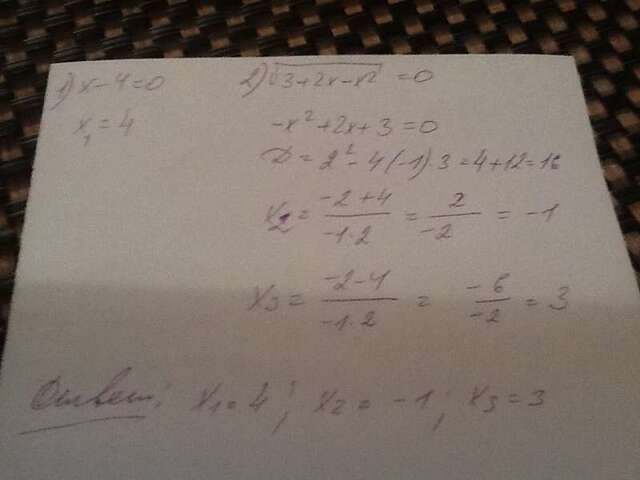 1) x-4=0
x₁=4
2) √3+2x-x² =0
-x²+2x+3=0
D=2²-4(-1)·3=4+12=16
x₂= -2+4/-1·2 = 2/-2 = -1
x₃= -2-4/-1·2 = -6/-2 = 3
Ответ: x₁=4; x₂=-1; x₃=3